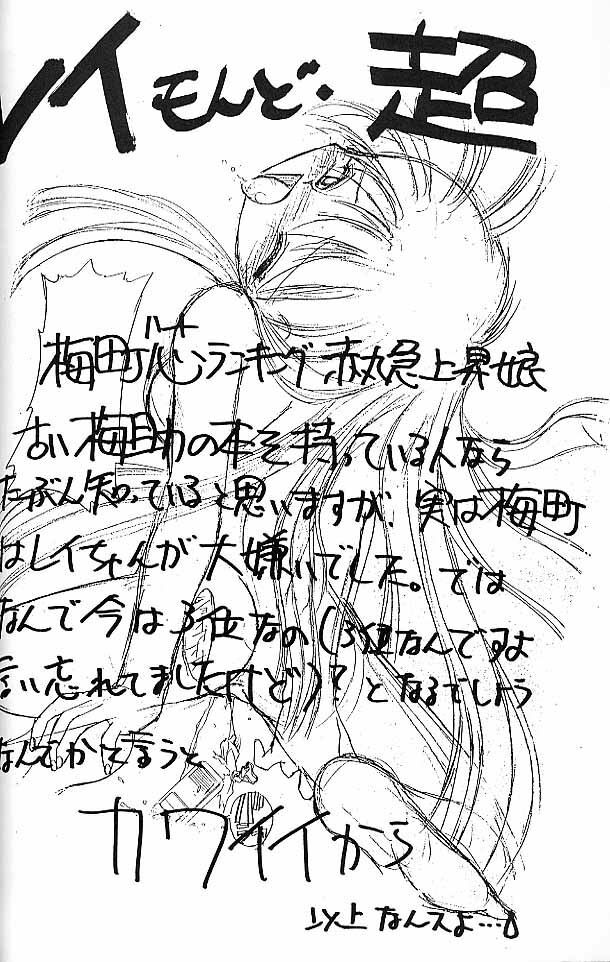 レイもんど・超
梅町心ランキング赤丸急上昇娘
ハート
古い梅町の本を持っている人なら
たぶん知っていると思いますが、実は梅町
はレイちゃんが大嫌いでした。では
なんで今は3位なの(3位なんですよ
言い忘れてましたけど)?となるでしょう
なんでかと言うと
カワイイから
以上なんスよ…。